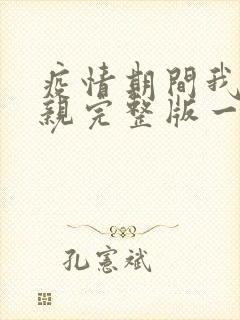 疫情期間我
親完整版一
孔憲斌